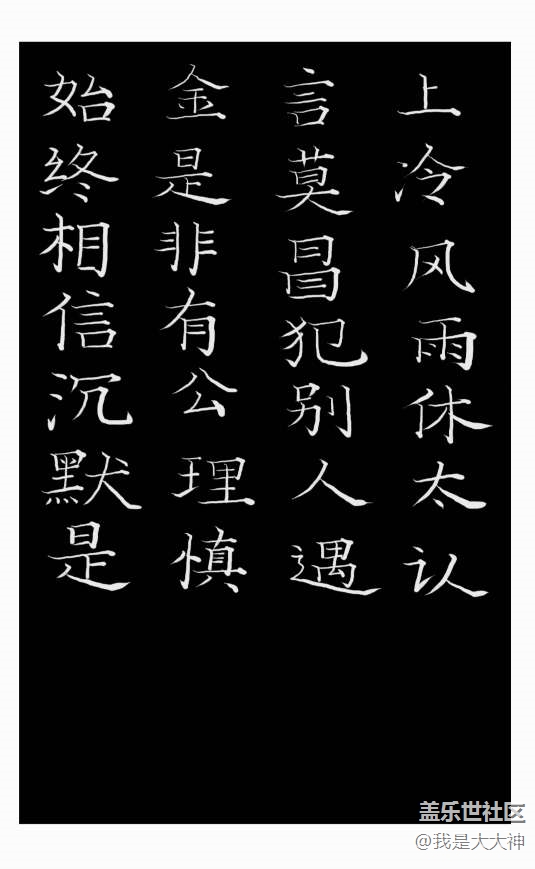 始终相信沉默是
金是非有公理慎
言莫冒犯别人遇
上冷风雨休太认
盖乐世社区
@我是大大神